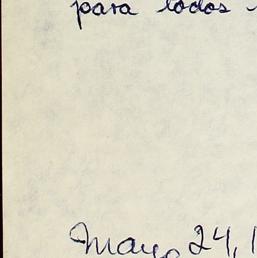 para todos
Mayo 24, 1